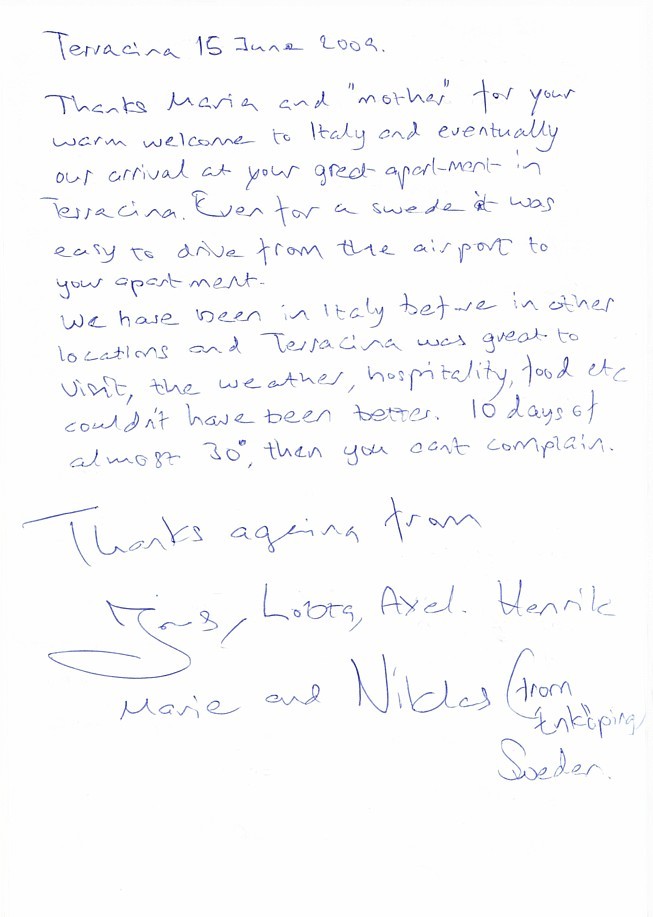 Terracina 15 June 2009.
Thanks Maria and "mother" for your
warm welcome to Italy and eventually
our arrival at your great apartment in
Terracina. Even for a swede it was
easy to drive from the airport to
your apartment.
We have been in Italy before in other
locations and Terracina was great to
visit, the weather, hospitality, food etc
couldn't have been better. 10 days of
almost 30°, then you cant complain.
Thanks ageing from
Lotta, Axel. Henrik
Marie and Niklas (from
Enköping
Sweden.